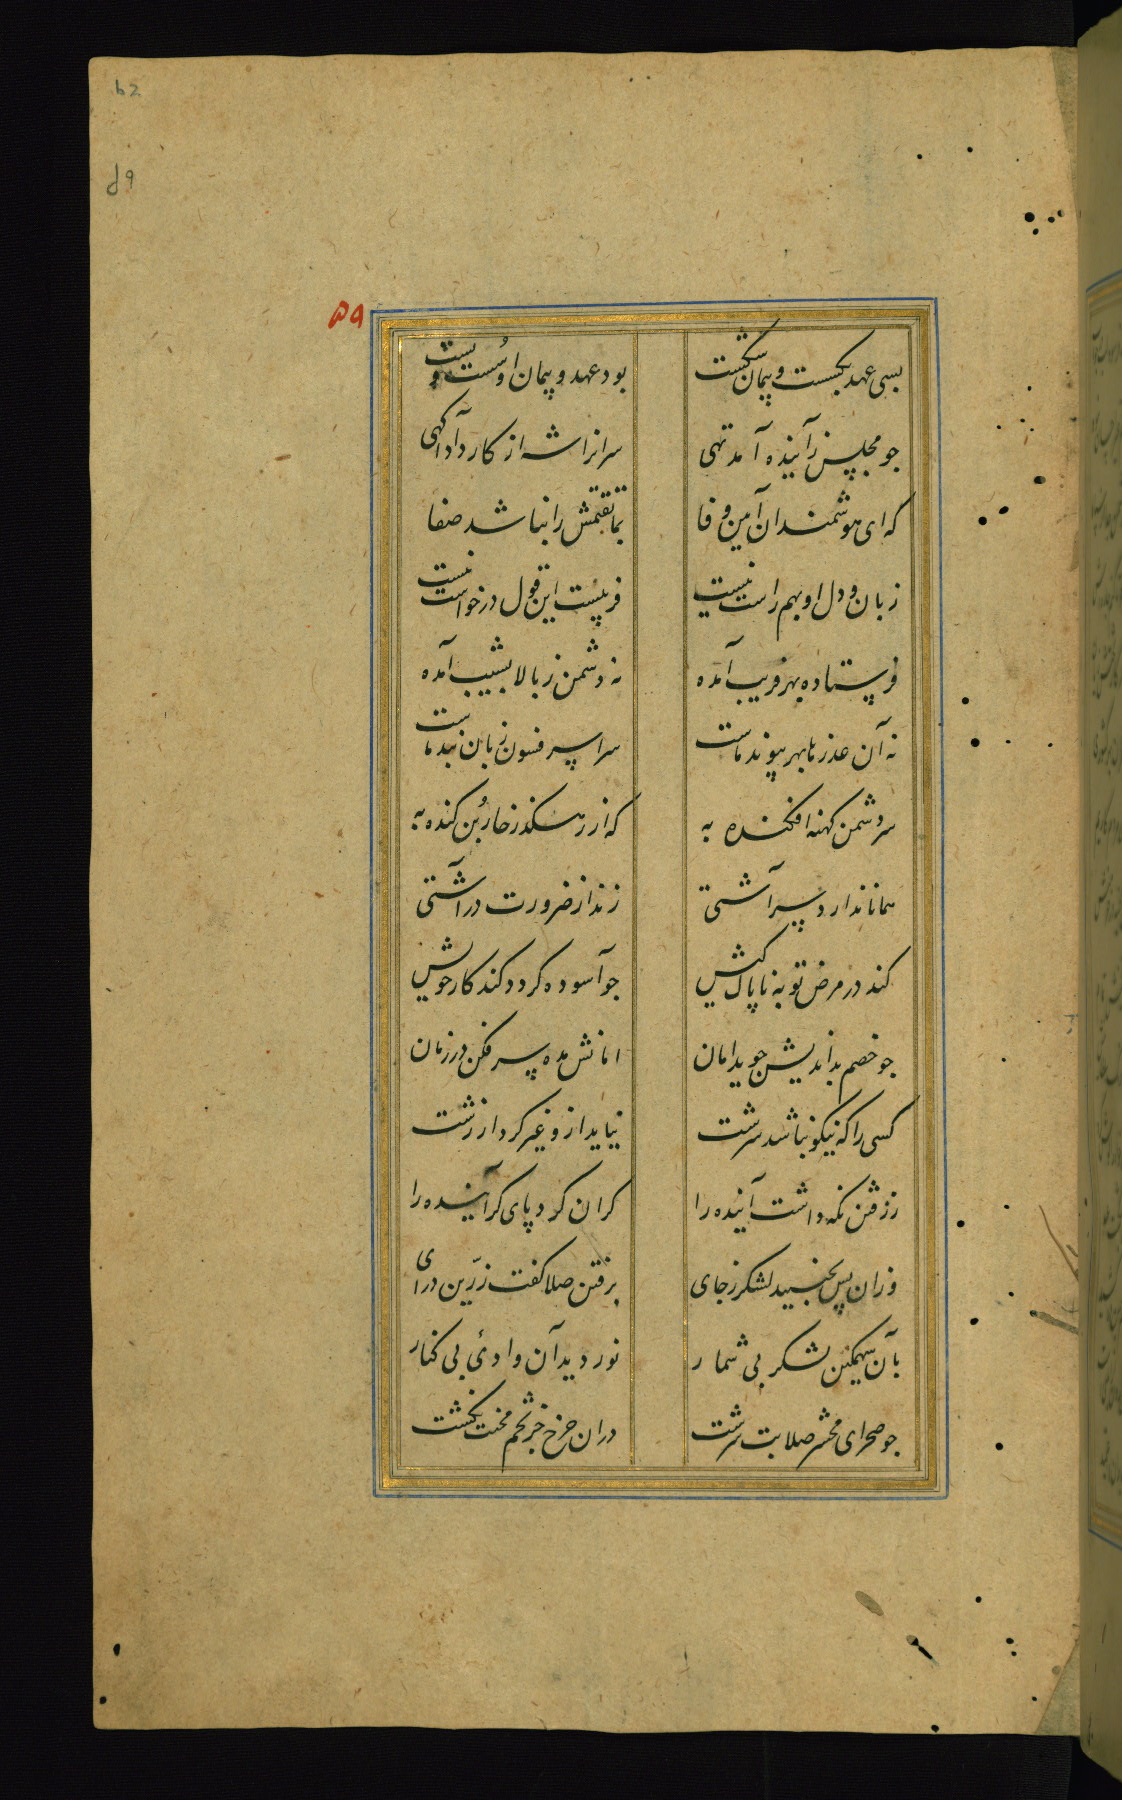 62
d9
۵۹
بسی عهد بکسست و پیمان شکست بود عهد و پیمان او سست و پست
جو مجلس ز آینده آمد تهی سرانرا شه از کار داد آکهی
که ای هوشمندان آیین وفا بما تقتمش را نباشد صفا
زبان و دل او بهم راست نیست فریبست این قول درخواست نیست
فرستاده بهر فریب آمده نه دشمن ز بالا بشیب آمده
نه آن عذرها بهر پیوند ماست سراسر فسون زبان بند ماست
سر دشمن کهنه افکنده به که از رهسکذر خاربن کنده به
همانا ندارد سر آشتی زند از ضرورت در آشتی
کند در مرض توبه ناپاک کیش جو آسوده کردد کند کار خویش
جو خصم بداندیش جوید امان امانش مده سر فکن در زمان
کسی را که نیکو نباشد سرشت نیاید ازو غیر کردار زشت
ز رفتن نکه داشت آینده را کران کرد پای کراینده را
وزان پس بجنبید لشکر ز جای برفتن صلا کفت زرین درای
بآن سهمکین لشکر بی شمار نوردید آن وادئ بی کنار
جو صحرای محشر صلابت سرشت دران جرخ جز تخم محنت نکشت